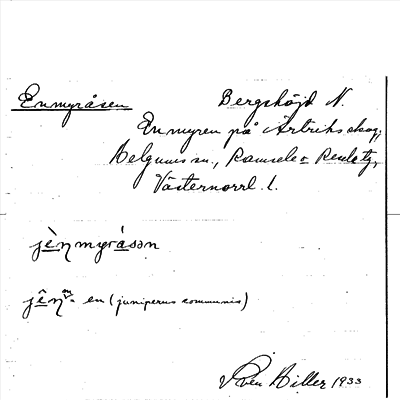 Enmyråsen Bergshöjd N.
Enmyren på Ärtriks skog,
Helgums sn., Ramsele o Resele tg,
Västernorrl. l.
jèn̥myrásən
jên- en (juniperus communis)
Sven Hiller 1933